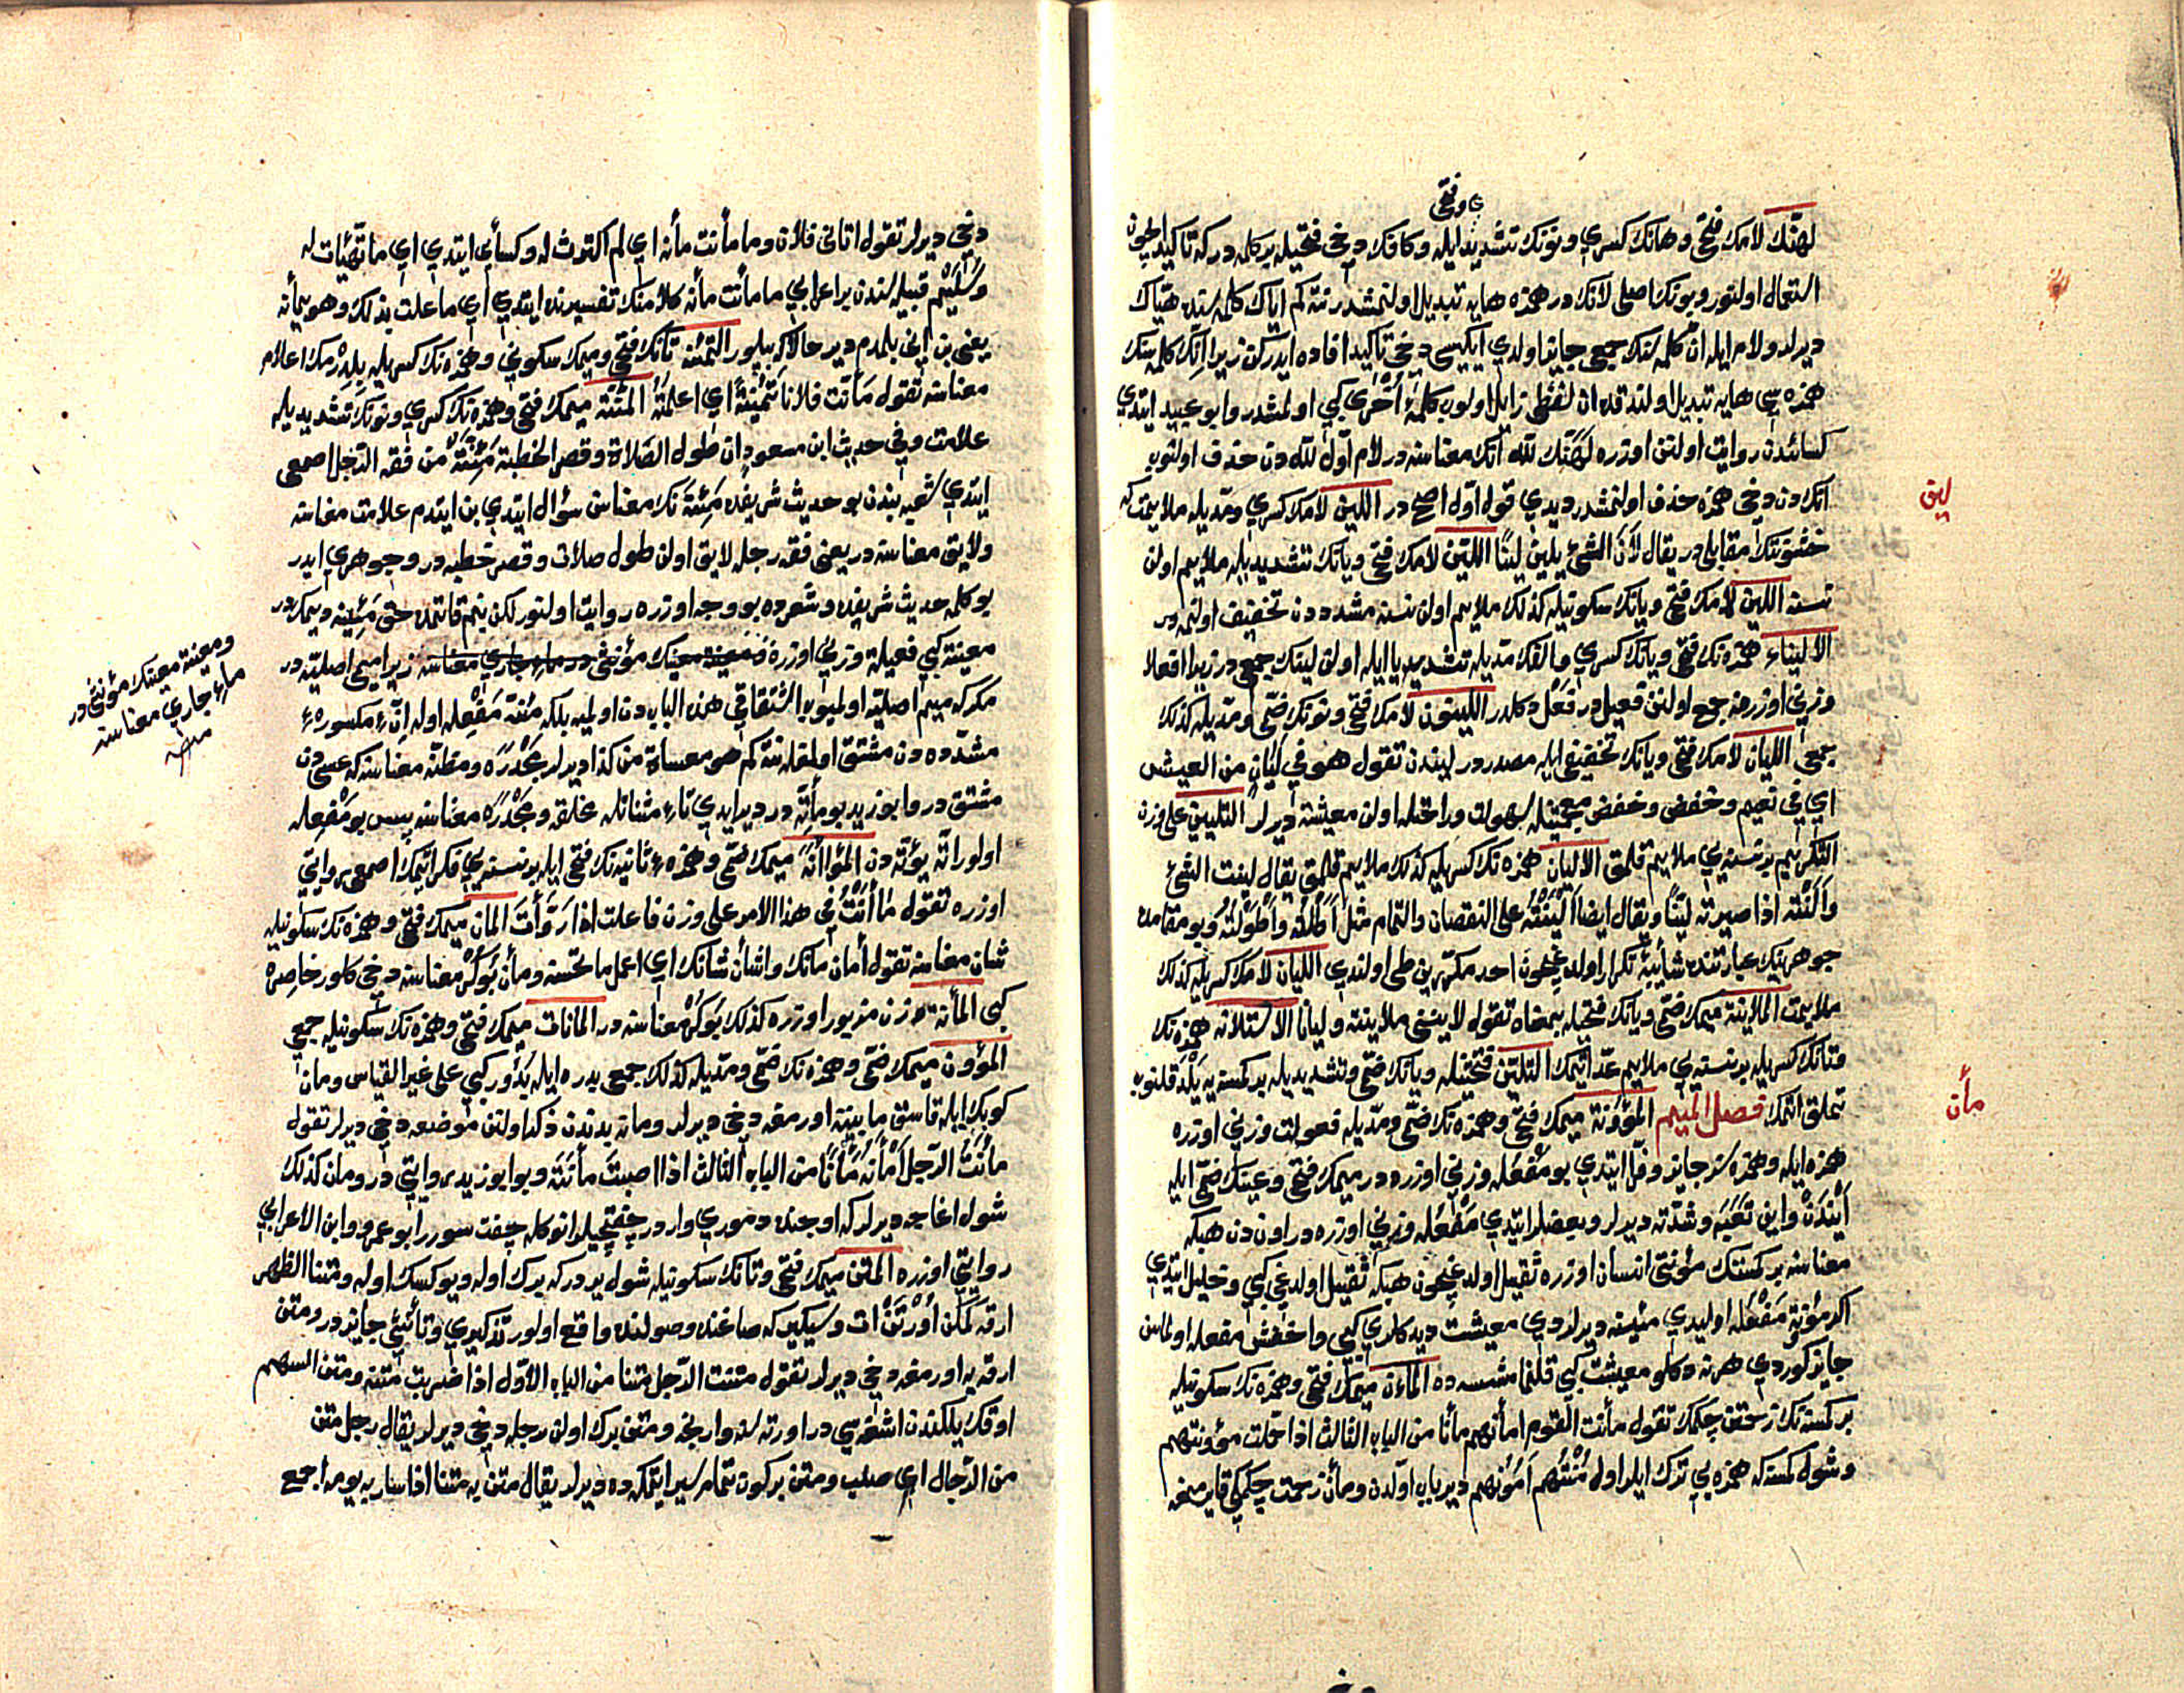 لهنّك لامك فتحى وهانك كسرى ونونك تشديد ايله وكافك دخى فتحيله بر كلمه دركه تأكيد ايچون
استعمال اولنور وبونك اصلى لانك در همزه هايه تبديل اولنمشدر نته كم اياك كلمه سنده هيّاك
ديرلر ولام ايله انّ كلمه سنك جمعى جايز اولدى ايكيسى دخى تأكيد افاده ايدركن زيرا انّك كلمه سنك
همزه سى هايه تبديل اولندقده انّ لفظى زايل اولوب كلمهٔ اخرى كبى اولمشدر وابو عبيد ايتدى
كسائيدن روايت اولنن اوزره لهنّك لله انّك معناسنه در لام اوّل لله دن حذف اولنوب
انك دن دخى همزه حذف اولنمشدر ديدى قول اوّل اصح در اللين لامك كسرى ومدّيله ملايمت كه
خشونتك مقابلى در يقال لان الشئ يلين لينًا الليّن لامك فتحى ويانك تشديديله ملايم اولن
نسنه اللين لامك فتحى ويانك سكونيله كذلك ملايم اولن نسنه مشدددن تخفيف اولنمه در
الاليناء همزه نك فتحى ويانك كسرى والفك مدّيله تشديد يا ايله اولن ليّنك جمعى در زيرا افعلا
وزنى اوزره جمع اولنن فعيل در فعل دكلدر الليّنون لامك فتحى ونونك ضمّى ومدّيله كذلك
جمعى الليان لامك فتحى ويانك تخفيفى ايله مصدردر ليندن تقول هو في ليان من العيش
اي في نعيم وخفض وخفض جيم سهولت وراحتله اولن معيشته ديرلر التليين على وزن
التكريم بر نسنه يى ملايم قلمق الاليان همزه نك كسريله كذلك ملايم قلمق يقال لينت الشئ
والنته اذا صيرته ليّنًا ويقال ايضا الينته على النقصان والتمام مثل اطلته واطولته وبو مقامده
جوهرينك عبارتنده شأبيهٔ تكرار اولدوغيچون احد مكرّرين طى اولندى الليان لامك كسريله كذلك
ملايمت الملاينة ميمك ضمّى ويانك فتحيله بمعناه تقول لاينى ملاينة وليانا الاستلانه همزه نك
وتانك كسريله بر نسنه يى ملايم عدّ اتمك التليّن فتحتيله ويانك ضمّى وتشديديله بر كمسنه يه يلدقلنوب
تملق اتمك فصل الميم المؤونة ميمك فتحى وهمزه نك ضمّى ومدّيله فعولت وزنى اوزره
همزه ايله وهمزه سز جايز وفرّا ايتدى بو مفعله وزنى اوزره در ميمك فتحى وعينك ضمّى ايله
ايندن واين تعبه وشدّته ديرلر وبعضلر ايتدى مفعله وزنى اوزره در اون دن هبكه
معناسنه بر كمسنك مؤنتى انسان اوزره ثقيل اولدوغيچون هبكه ثقيل اولدغى كبى وخليل ايتدى
اكر مؤنة مفعله اوليدى مئينه ديرلردى معيشت ديدكلرى كبى واخفش مفعله اولماسن
جايز كوردى هر نه دكلو معيشت كبى قلنما مشسه ده المأن ميمك فتحى وهمزه نك سكونيله
بر كمسنه نك زحمتن چكمك تقول مأنت القوم امأنهم مأنا من الباب الثالث اذا حملت مؤونتهم
وشول كمسنه كه همزه يى ترك ايلر اوله منتهم امونهم دير باب اوّلدن ومأن زحمت چكمكى قايرمغه
لين
مأن
وفتحى
دخى ديرلر تقول اتانى فلان وما مأنت مأنه اي لم اكترث له وكسائى ايتدى اي ما تهيّأت له
وسليم قبيله سندن بر اعرابى ما مأنت مأنه كلامنك تفسيرنده ايتدى اي ما علمت بذلك وهو يمأنه
يعنى بن انى بلمدم دير حالاكه بيلور التمئنة تانك فتحى وميمك سكونى وهمزه نك كسريله بلدرمك اعلام
معناسنه تقول مأنت فلانا تمئنةً اي اعلمته المئنّة ميمك فتحى وهمزه نك كسرى ونونك تشديديله
علامت وفي حديث ابن مسعود ان طول الصلاة وقصر الخطبة مئنّة من فقه الرّجل اصمعى
ايتدى شعبه بندن بو حديث شريفده مئنّة نك معناسن سؤال ايتدى بن ايتدم علامت معناسنه
ولايق معناسنه در يعنى فقه رجله لايق اولن طول صلات وقصر خطبه در وجوهرى ايدر
بو كلمه حديث شريفده وشعرده بو وجه اوزره روايت اولنور لكن بنم قاتمده حق مئينه ديمكدر
معينة كبى فعيلة وزنى اوزره زيرا ميمى اصليّه در
مكركه ميم اصليّه اولميوب اشتقاقى هذا الباب دن اولميه بلكه مئنّة مفعله اوله انّ ٔ مكسورهٔ
مشدّده دن مشتق اولمغله نته كم هو معساة من كذا ديرلر مجدره ومظنّه معناسنه كه عسى دن
مشتق در وابو زيد بو مأتّة در دير ايدى تاءٔ مثنات ايله مخلقه ومجدره معناسنه پس بو مفعله
اولور اتّه يؤتّه دن المؤاأنة ميمك ضمّى وهمزهٔ ثانيه نك فتحى ايله بر نسنه يى فكر اتمك اصمعى روايتى
اوزره تقول ماأنت في هذا الامر على وزن فاعلت اذا روّأت المان ميمك فتحى وهمزه نك سكونيله
شان معناسنه تقول أمان مانك واشأن شانك اي اعمل ما تحسنه ومأن بوكر معناسنه دخى كلور خاصره
كبى المأنة وزن مزبور اوزره كذلك بوكر معناسنه در المانات ميمك فتحى وهمزه نك سكونيله جمعى
المؤون ميمك ضمّى وهمزه نك ضمّى ومدّيله كذلك جمعى بدره ايله بدور كبى على غير القياس ومان
كوبك ايله قاسق مابينه اورمغه دخى ديرلر ومانه بدندن ذكر اولنن موضعه دخى ديرلر تقول
مأنت الرّجل أمأنه مأنا من الباب الثالث اذا اصبت مأنته وبو ابو زيد روايتى در ومان كذلك
شول اغاجه ديرلر كه اوجنده دمورى واردر چفتجيلر انوكله چفت سورر ابو عمرو وابن الاعرابى
روايتى اوزره المتن ميمك فتحى وتانك سكونيله شول يردركه برك اوله ويوكسك اوله ومتنا الظهر
ارقه وسيكيركه صاغنده وصولنده واقع اولور تذكيرى وتأنيثى جايزدر ومتن
ارقه يه اورمغه دخى ديرلر تقول متنت الرّجل متنا من الباب الاوّل اذا ضربت متنه ومتن السهم
اوقك يلكندن اشغه سى در اورته سنه وارنجه ومتن برك اولن رجله دخى ديرلر يقال رجل متن
من الرّجال اي صلب ومتن بر كون تمام سير ايتمكه ده ديرلر يقال متن به متنا اذا سار به يومه اجمع
ومعينة معينك مؤنثى در
ماءٔ جارى معناسنه